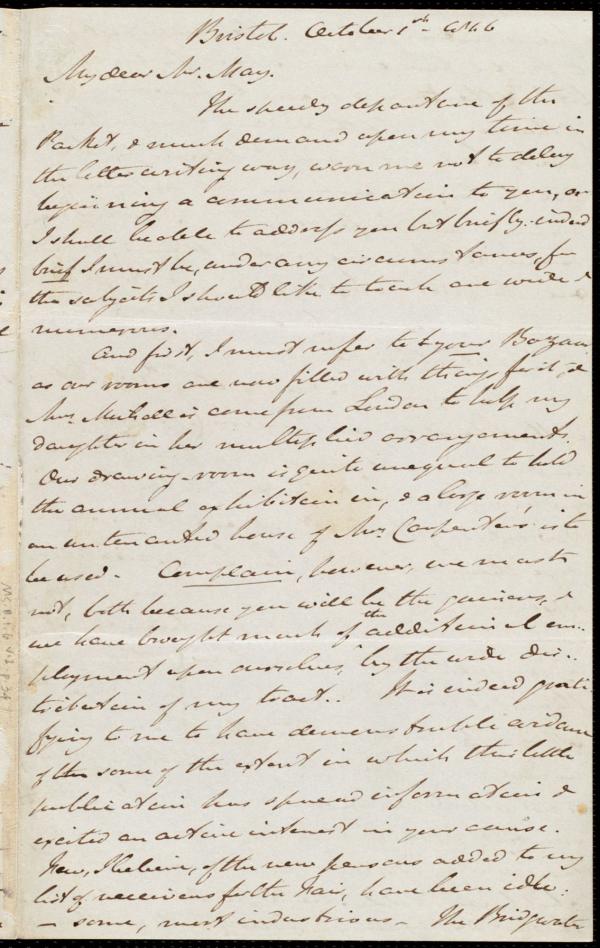 Bristol. October 1st 1846
My dear Mr. May.
The speedy departure of the
Packet, & much demand upon my time in
the letter writing way, warn me not to delay
beginning a communication to you, or
I shall be able to address you but briefly. indeed
brief I must be, under any circumstances, for
the subjects I should like to touch are wide &
numerous.
And first, I must refer to your Bazaar
as our rooms are now filled with things for it, &
Mrs. Michell is come from London to help my
daughter in her multiplied arrangements.
Our drawing-room is quite unequal to hold
the annual exhibition in, & a large room in
an untenanted house of Mrs. Carpenter's is to
be used. Complain, however, we must
not, both because you will be the gainers, &
we have brought much of the additional em-
ployment upon ourselves, by the wide dis-
tribution of my tract.. It is indeed grati-
fying to me to have demonstrable evidence
of the some of the extent in which this little
publication has spread information &
excited an active interest in your cause.
Few, I believe, of the new persons added to my
list of receivers for the Fair, have been idle:
- some, most industrious - The Bridgwater